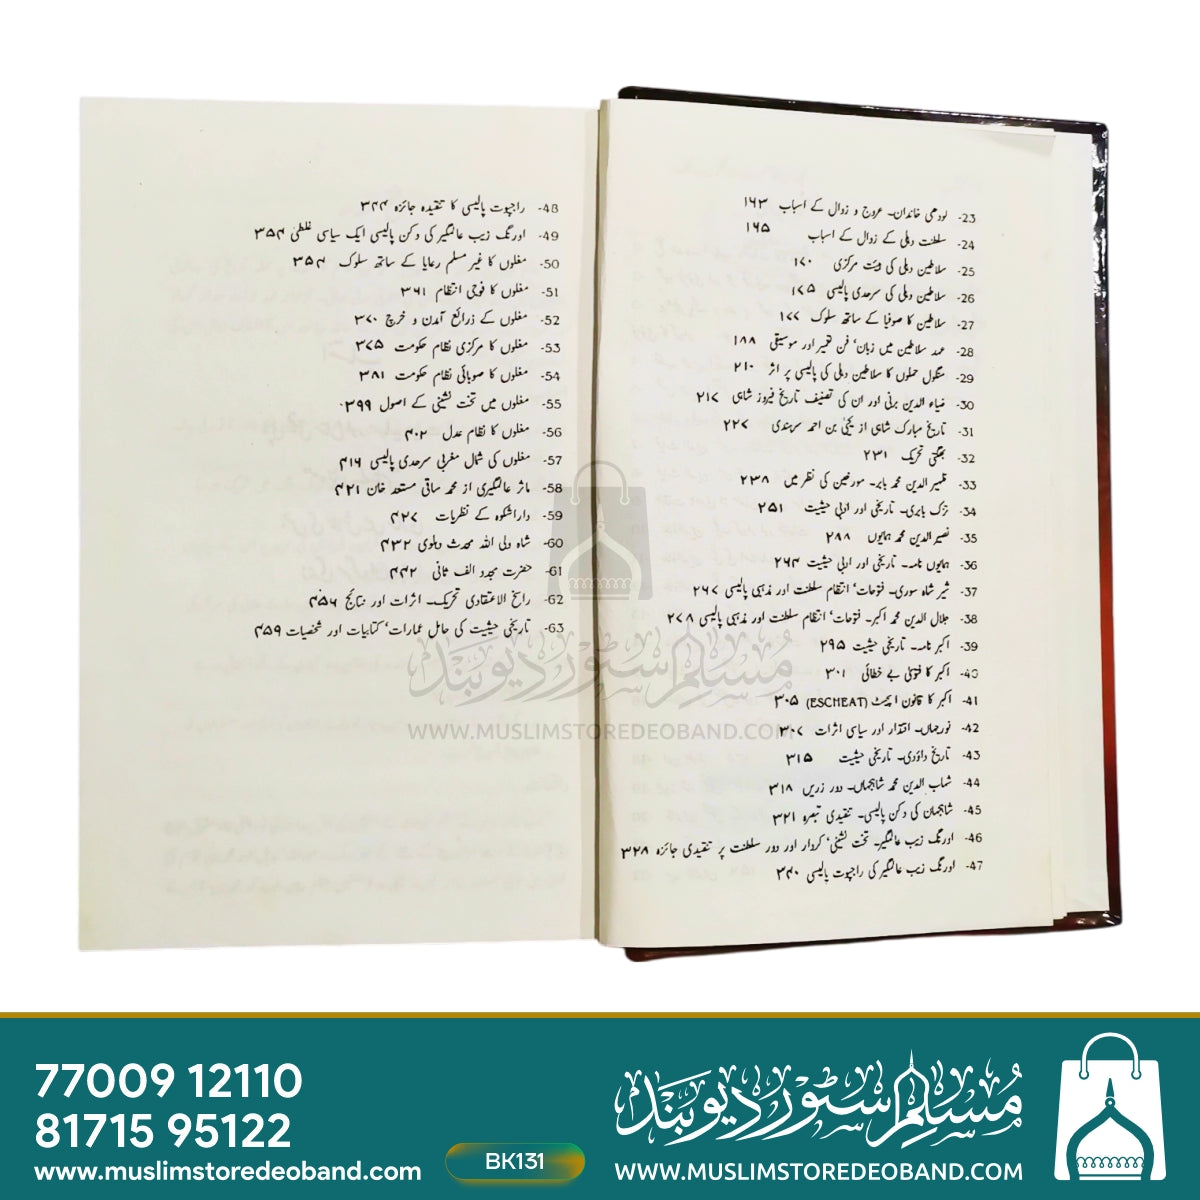 23- لودھی خاندان۔ عروج و زوال کے اسباب ۱۶۳
24- سلطنت دہلی کے زوال کے اسباب ۱۶۵
25- سلاطین دہلی کی ہیئت مرکزی ۱۷۰
26- سلاطین دہلی کی سرحدی پالیسی ۱۷۵
27- سلاطین کا صوفیا کے ساتھ سلوک ۱۷۷
28- عہد سلاطین میں زبان' فن تعمیر اور موسیقی ۱۸۸
29- منگول حملوں کا سلاطین دہلی کی پالیسی پر اثر ۲۱۰
30- ضیاء الدین برنی اور ان کی تصنیف تاریخ فیروز شاہی ۲۱۷
31- تاریخ مبارک شاہی از یحییٰ بن احمد سرہندی ۲۲۷
32- بھگتی تحریک ۲۳۱
33- ظہیر الدین محمد بابر۔ مورخین کی نظر میں ۲۳۸
34- تزک بابری۔ تاریخی اور ادبی حیثیت ۲۵۱
35- نصیر الدین محمد ہمایوں ۲۸۸
36- ہمایوں نامہ۔ تاریخی اور ادبی حیثیت ۲۶۴
37- شیر شاہ سوری۔ فتوحات' انتظام سلطنت اور مذہبی پالیسی ۲۶۷
38- جلال الدین محمد اکبر۔ فتوحات' انتظام سلطنت اور مذہبی پالیسی ۲۷۸
39- اکبر نامہ۔ تاریخی حیثیت ۲۹۵
40- اکبر کا فتویٰ بے خطائی ۳۰۱
41- اکبر کا قانون اسچیٹ (ESCHEAT) ۳۰۵
42- نورجہاں۔ اقتدار اور سیاسی اثرات ۳۰۷
43- تاریخ داؤدی۔ تاریخی حیثیت ۳۱۵
44- شہاب الدین محمد شاہجہاں۔ دور زریں ۳۱۸
45- شاہجہان کی دکن پالیسی۔ تنقیدی تبصرہ ۳۲۱
46- اورنگ زیب عالمگیر۔ تخت نشینی' کردار اور دور سلطنت پر تنقیدی جائزہ ۳۲۸
47- اورنگ زیب عالمگیر کی راجپوت پالیسی ۳۴۰
48- راجپوت پالیسی کا تنقیدہ جائزہ ۳۴۴
49- اورنگ زیب عالمگیر کی دکن پالیسی ایک سیاسی غلطی ۳۵۴
50- مغلوں کا غیر مسلم رعایا کے ساتھ سلوک ۳۵۴
51- مغلوں کا فوجی انتظام ۳۶۱
52- مغلوں کے ذرائع آمدن و خرچ ۳۷۰
53- مغلوں کا مرکزی نظام حکومت ۳۷۵
54- مغلوں کا صوبائی نظام حکومت ۳۸۱
55- مغلوں میں تخت نشینی کے اصول ۳۹۹
56- مغلوں کا نظام عدل ۴۰۲
57- مغلوں کی شمال مغربی سرحدی پالیسی ۴۱۶
58- ماثر عالمگیری از محمد ساقی مستعد خان ۴۲۱
59- داراشکوہ کے نظریات ۴۲۷
60- شاہ ولی اللہ محدث دہلوی ۴۳۲
61- حضرت مجدد الف ثانی ۴۴۲
62- راسخ الاعتقادی تحریک۔ اثرات اور نتائج ۴۵۶
63- تاریخی حیثیت کی حامل عمارات' کتابیات اور شخصیات ۴۵۹
مسلم سٹور دیوبند
WWW.MUSLIMSTOREDEOBAND.COM
77009 12110
81715 95122
www.muslimstoredeoband.com
BK131
مسلم سٹور دیوبند
WWW.MUSLIMSTOREDEOBAND.COM